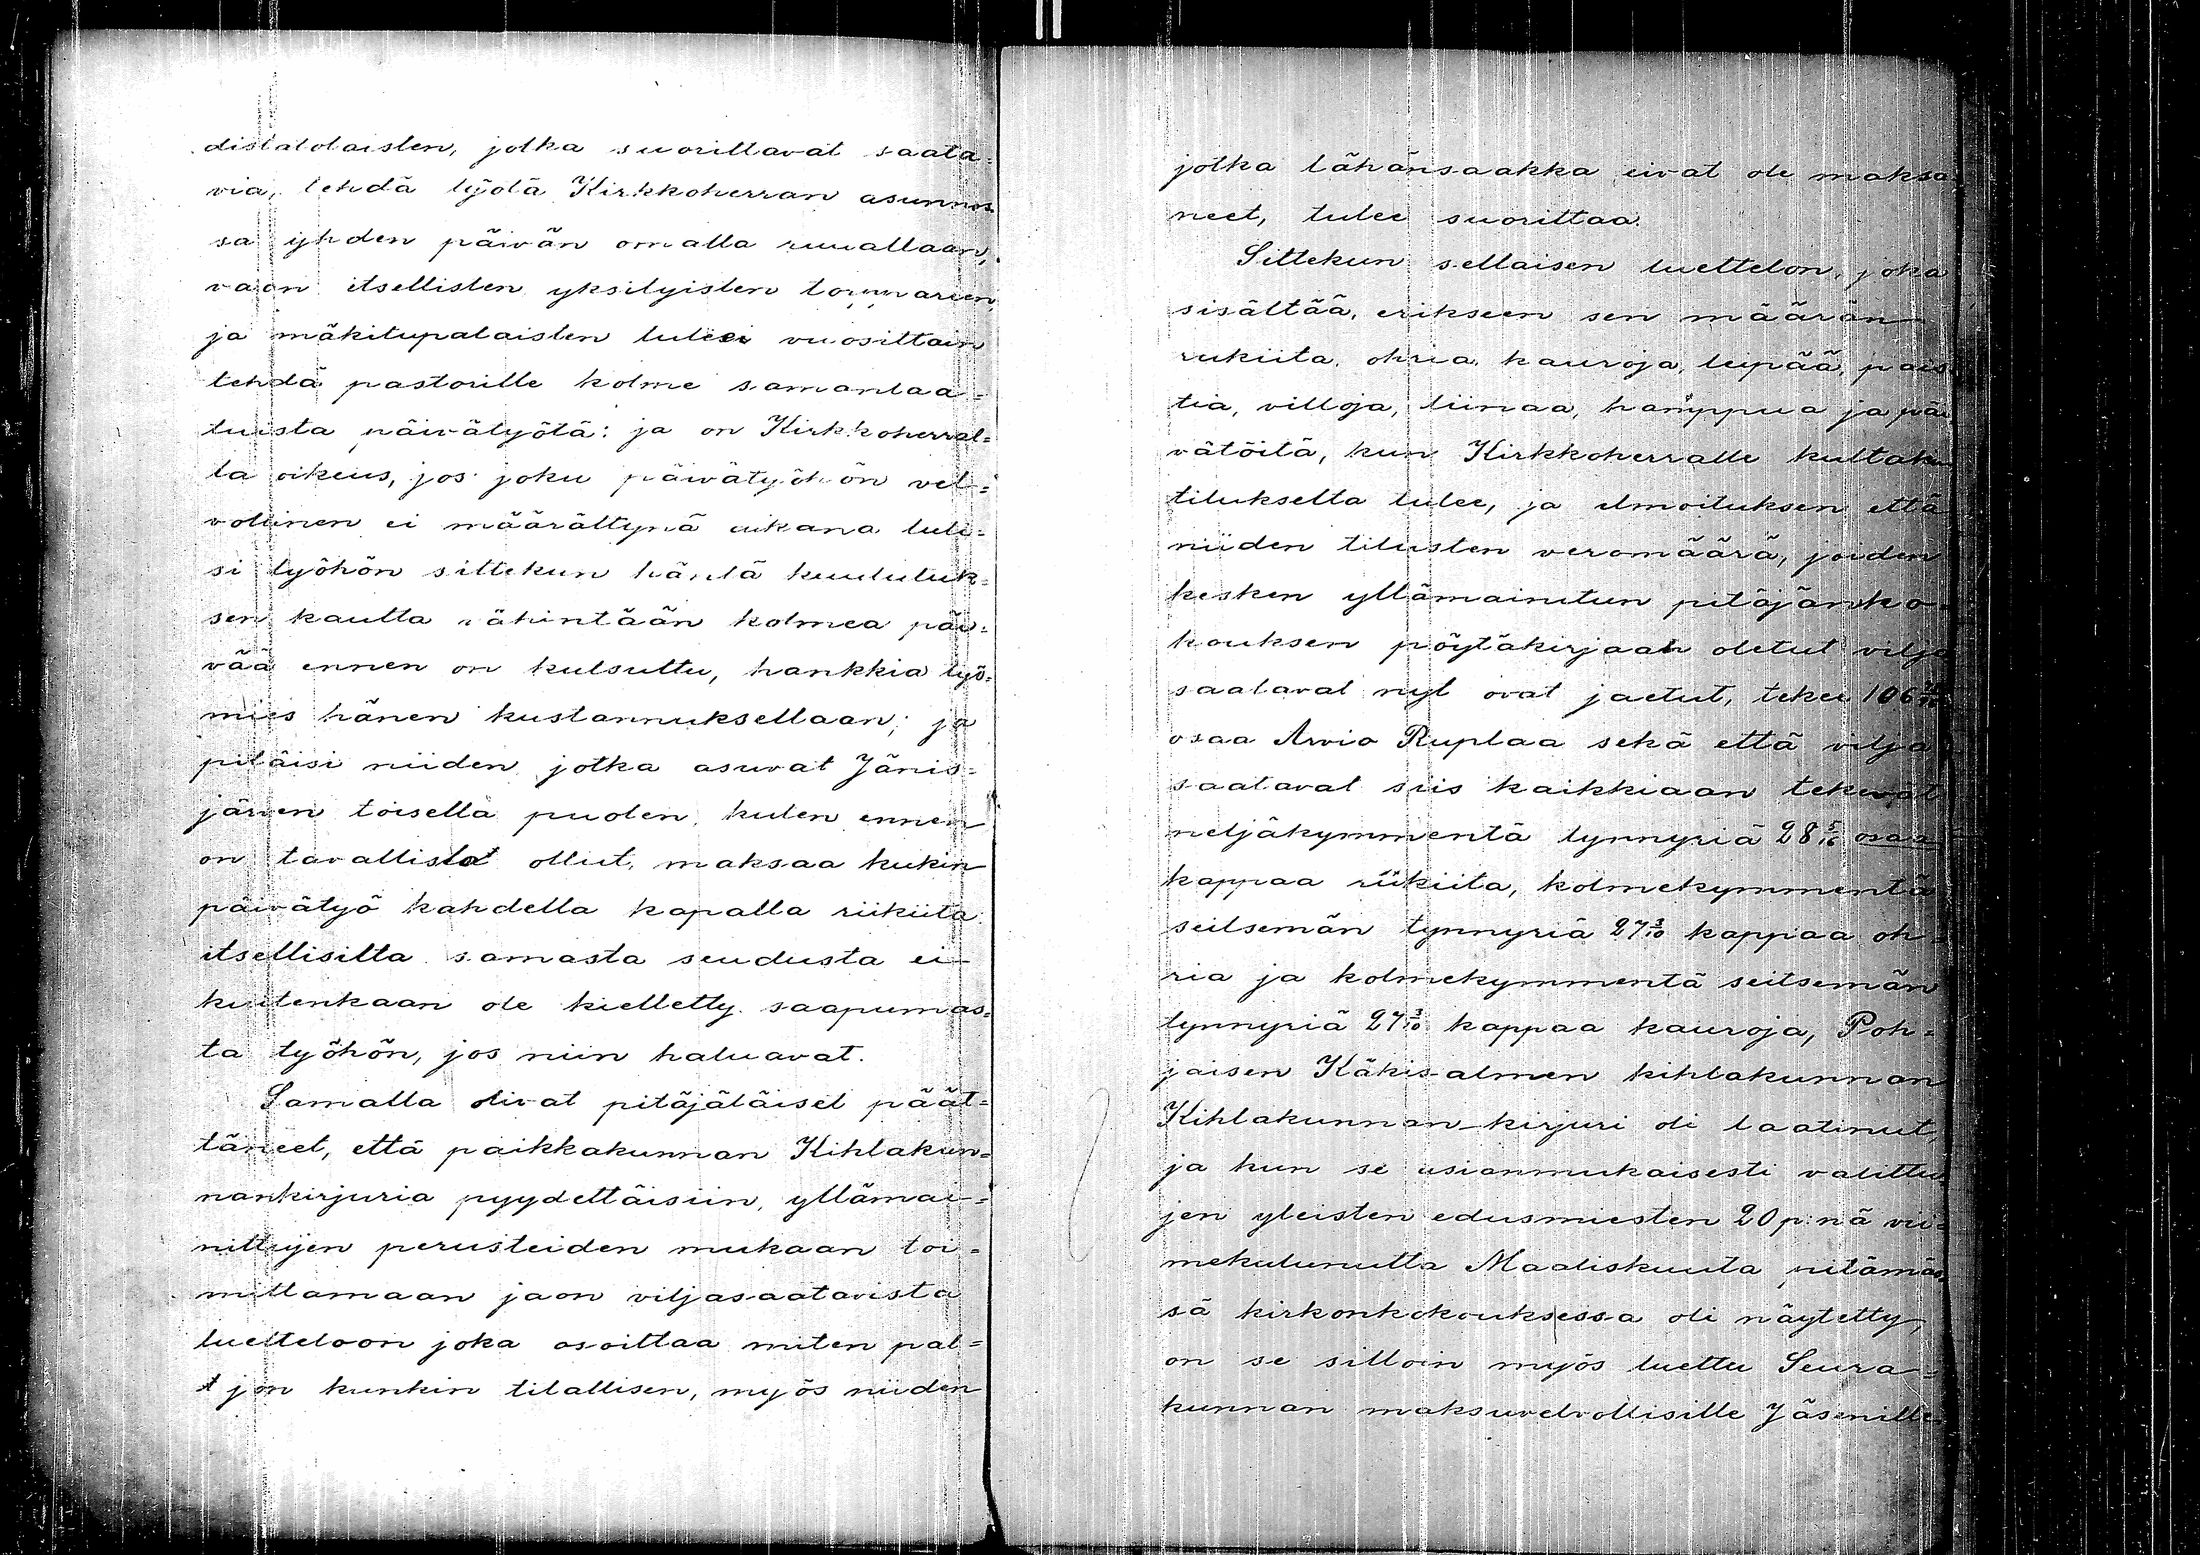 distatolaisten, jotka suorittavat saata-
via, tehdä työtä Kirkkoherran asunnos-
sa yhden päivän omalla ruuallaan,
vaan itsellisten yksityisten torpparien,
ja mäkitupalaisten tulee vuosittain
tehdä pastorille kolme samanlaa-
tuista päivätyötä: ja on Kirkkoherral-
la oikeus, jos joku päivätyöhön vel-
vollinen ei määrättynä aikana tuli-
si työhön sittekun häntä kuulutuk-
sen kautta vähintään kolmea päi-
vää ennen on kutsuttu, hankkia työ-
mies hänen kustannuksellaan; ja
pitäisi niiden jotka asuvat Jänis-
järven toisella puolen, kuten ennen
on tavallista ollut, maksaa kukin
päivätyö kahdella kapalla rükiita
itsellisiltä samasta seudusta ei
kuitenkaan ole kielletty saapumas-
ta työhön, jos niin haluavat.
Samalla olivat pitäjäläiset päät-
täneet, että paikkakunnan Kihlakun-
nankirjuria pyydettäisiin, yllämai-
nittujen perusteiden mukaan toi-
mittamaan jaon viljasaatavista
luetteloon joka osoittaa miten pal-
jon kunkin tilallisen, myös niiden
jotka tähänsaakka eivat ole maksa-
neet, tulee suorittaa.
Sittekun sellaisen luettelon, joka
sisältää, erikseen sen määrän
rukiita, ohria, kauroja, leipää, pais-
tia, villoja, liinaa, hamppua ja päi-
vätöitä, kun Kirkkoherralle kultakin
tilukselta tulee, ja ilmoituksen että
niiden tilusten veromäärä, joiden
kesken yllämainitun pitäjänko-
kouksen pöytäkirjaan otetut vilja
saatavat nyt ovat jaetut, tekee 106
osaa Arvio Ruplaa sekä että vilja
saatavat siis kaikkiaan tekevät
neljäkymmentä tynnyriä 28 5/16 osaa
kappaa rükiita, kolmekymmentä
seitsemän tynnyriä 27 3/10 kappaa oh-
ria ja kolmekymmentä seitsemän
tynnyriä 27 3/10 kappaa kauroja, Poh-
jaisen Käkisalmen kihlakunnan
Kihlakunnan kirjuri oli laatinut,
ja kun se asianmukaisesti valittu-
jen yleisten edusmiesten 20 p:nä vii-
mekulunutta Maaliskuuta pitämäs-
sä kirkonkokouksessa oli näytetty,
on se silloin myös luettu Seura-
kunnan maksuvelvollisille Jäsenille